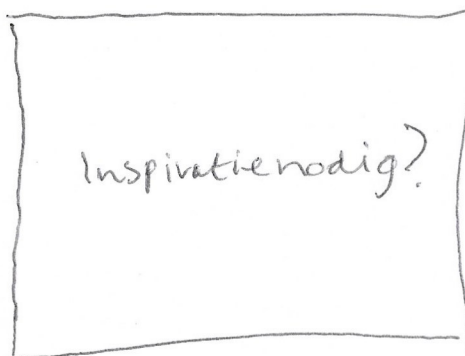 Inspiratie nodig?